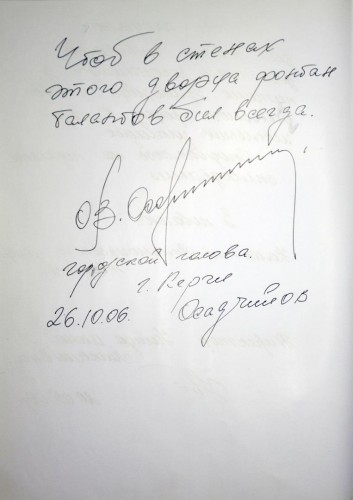 Чтоб в стенах
этого дворца фонтан
талантов бил всегда.
О.В. Осад
городской голова.
г. Керчи
26.10.06. Осадчий О В